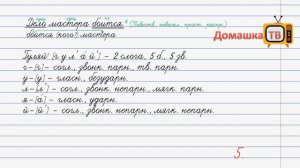 Дело мастера боится.⁴ (Повеств., невоскл., прост., распр.)
боится (кого?) мастера
Гуляй [г у л' а́ й'] - 2 слога, 5 б., 5 зв.
г - [г] - согл., звонк. парн., тв. парн.
у - [у] - гласн., безударн.
л - [л'] - согл., звонк. непарн., мягк. парн.
я - [а] - гласн., ударн.
й - [й'] - согл., звонк. непарн., мягк. непарн.
Домашка ТВ
5.